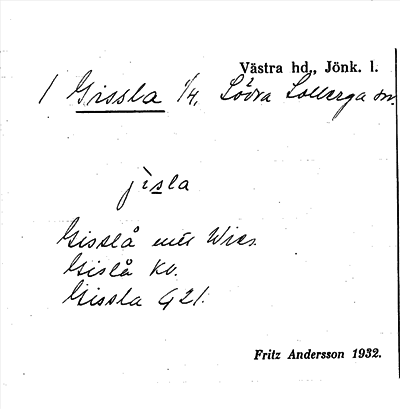 Västra hd., Jönk. l.
1 Gissla 1/4, Södra Solberga sn.
jìsla
Gisslå
Gislå Kv.
Gissla G 21.
Fritz Andersson 1932.